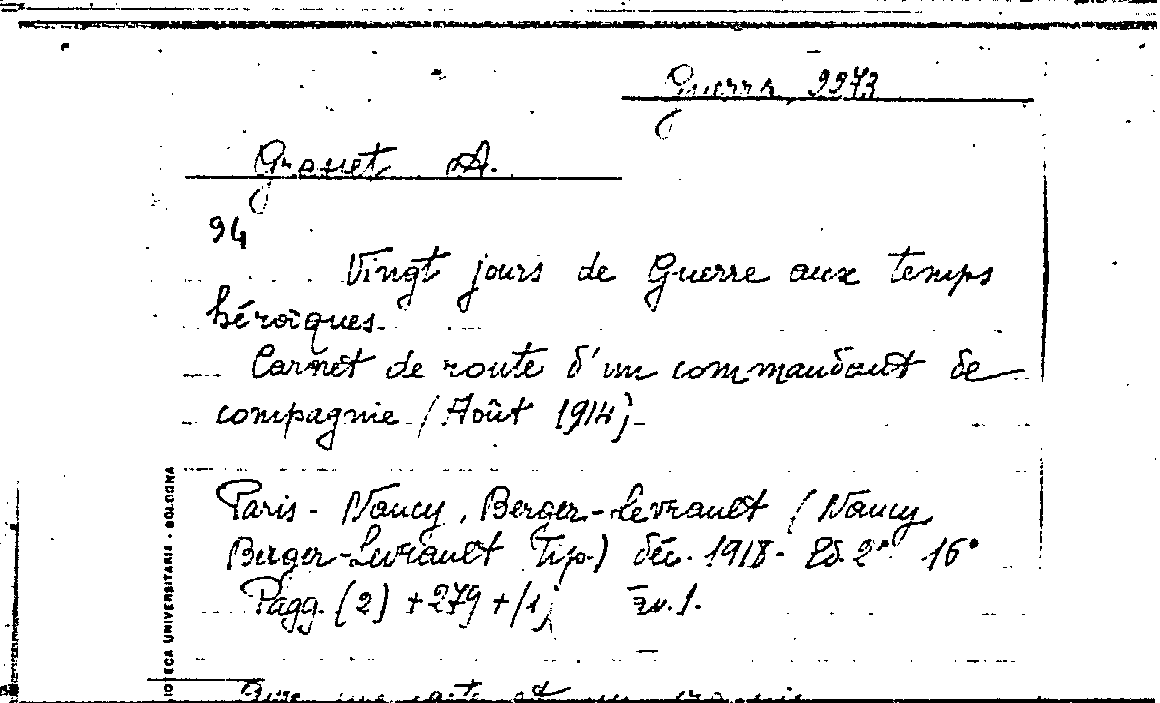 Guerra, 2273
Grasset A.
94
Vingt jours de Guerre aux temps
héroïques.
Carnet de route d'un commandant de
compagnie (Août 1914)
Paris - Nancy, Berger-Levrault (Nancy
Berger-Levrault Tip.) déc. 1918 - Ed. 2ª 16°
Pagg. (2) + 279 + (1)
IOTECA UNIVERSITARIA - BOLOGNA